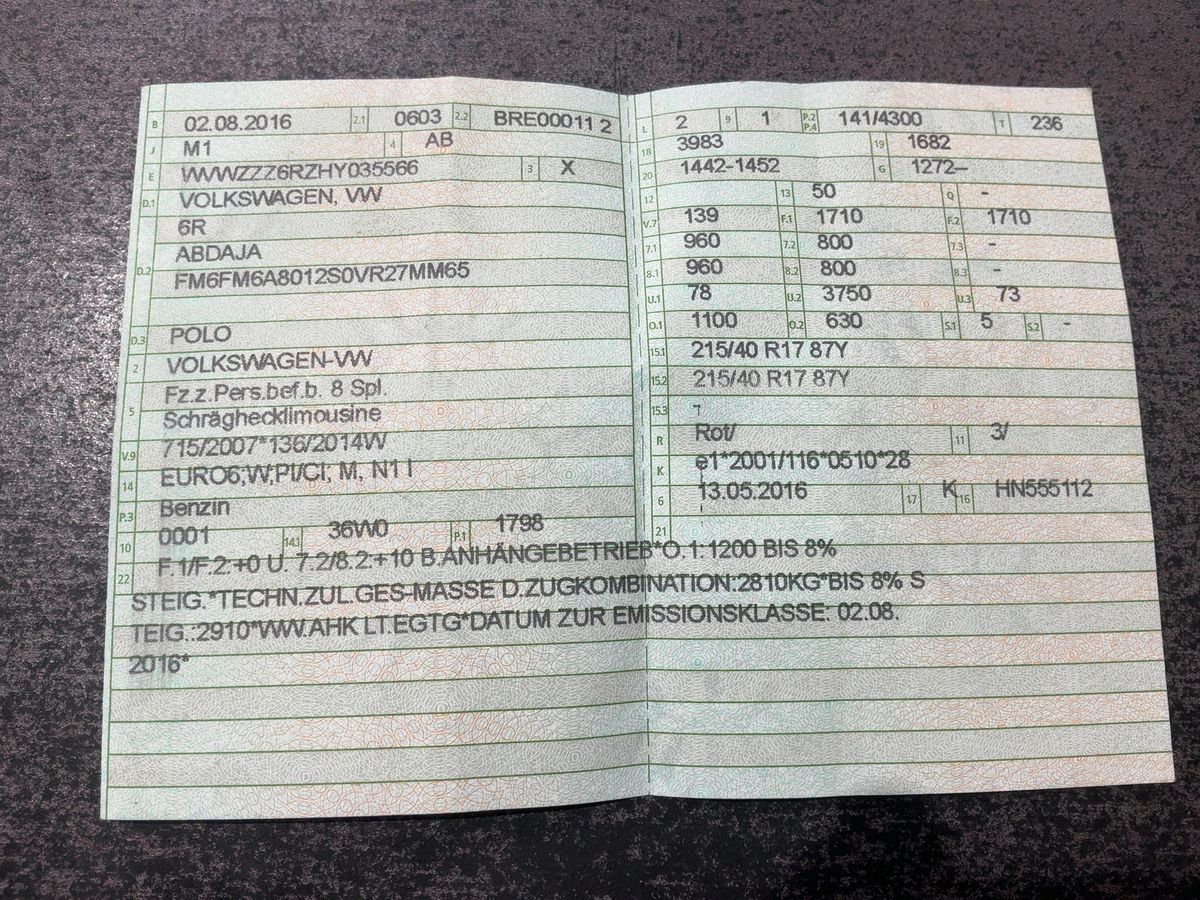 B 02.08.2016 2.1 0603 2.2 BRE00011 2
J M1 4 AB
E WVWZZZ6RZHY035566 3 X
D.1 VOLKSWAGEN, VW
6R
D.2 ABDAJA
FM6FM6A8012S0VR27MM65
D.3 POLO
2 VOLKSWAGEN-VW
5 Fz.z.Pers.bef.b. 8 Spl.
Schräghecklimousine
V.9 715/2007*136/2014W
14 EURO6;W;PI/CI; M, N1 I
P.3 Benzin
10 0001 14.1 36W0 P.1 1798
L 2 9 1 P.2 P.4 141/4300 T 236
18 3983 19 1682
20 1442-1452 G 1272–
12 13 50 Q -
V.7 139 F.1 1710 F.2 1710
7.1 960 7.2 800 7.3 -
8.1 960 8.2 800 8.3 -
U.1 78 U.2 3750 U.3 73
O.1 1100 O.2 630 S.1 5 S.2 -
15.1 215/40 R17 87Y
15.2 215/40 R17 87Y
15.3
R Rot/ 11 3/
K e1*2001/116*0510*28
6 13.05.2016 17 K 16 HN555112
21
22 F.1/F.2:+0 U. 7.2/8.2:+10 B.ANHÄNGEBETRIEB*O.1:1200 BIS 8%
STEIG.*TECHN.ZUL.GES-MASSE D.ZUGKOMBINATION:2810KG*BIS 8% S
TEIG.:2910*WW.AHK LT.EGTG*DATUM ZUR EMISSIONSKLASSE: 02.08.
2016*